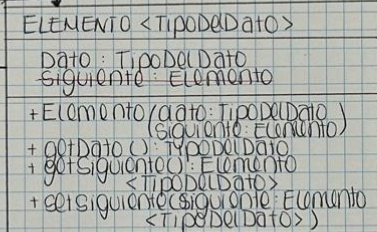 ELEMENTO <TipoDelDato>
Dato : TipoDelDato
Siguiente : Elemento
+ Elemento (dato: TipoDelDato
(siguiente: Elemento)
+ getDato () : TypoDelDato
+ getSiguiente() : Elemento
<TipoDelDato>
+ setSiguiente(siguiente: Elemento
<TipoDelDato>)